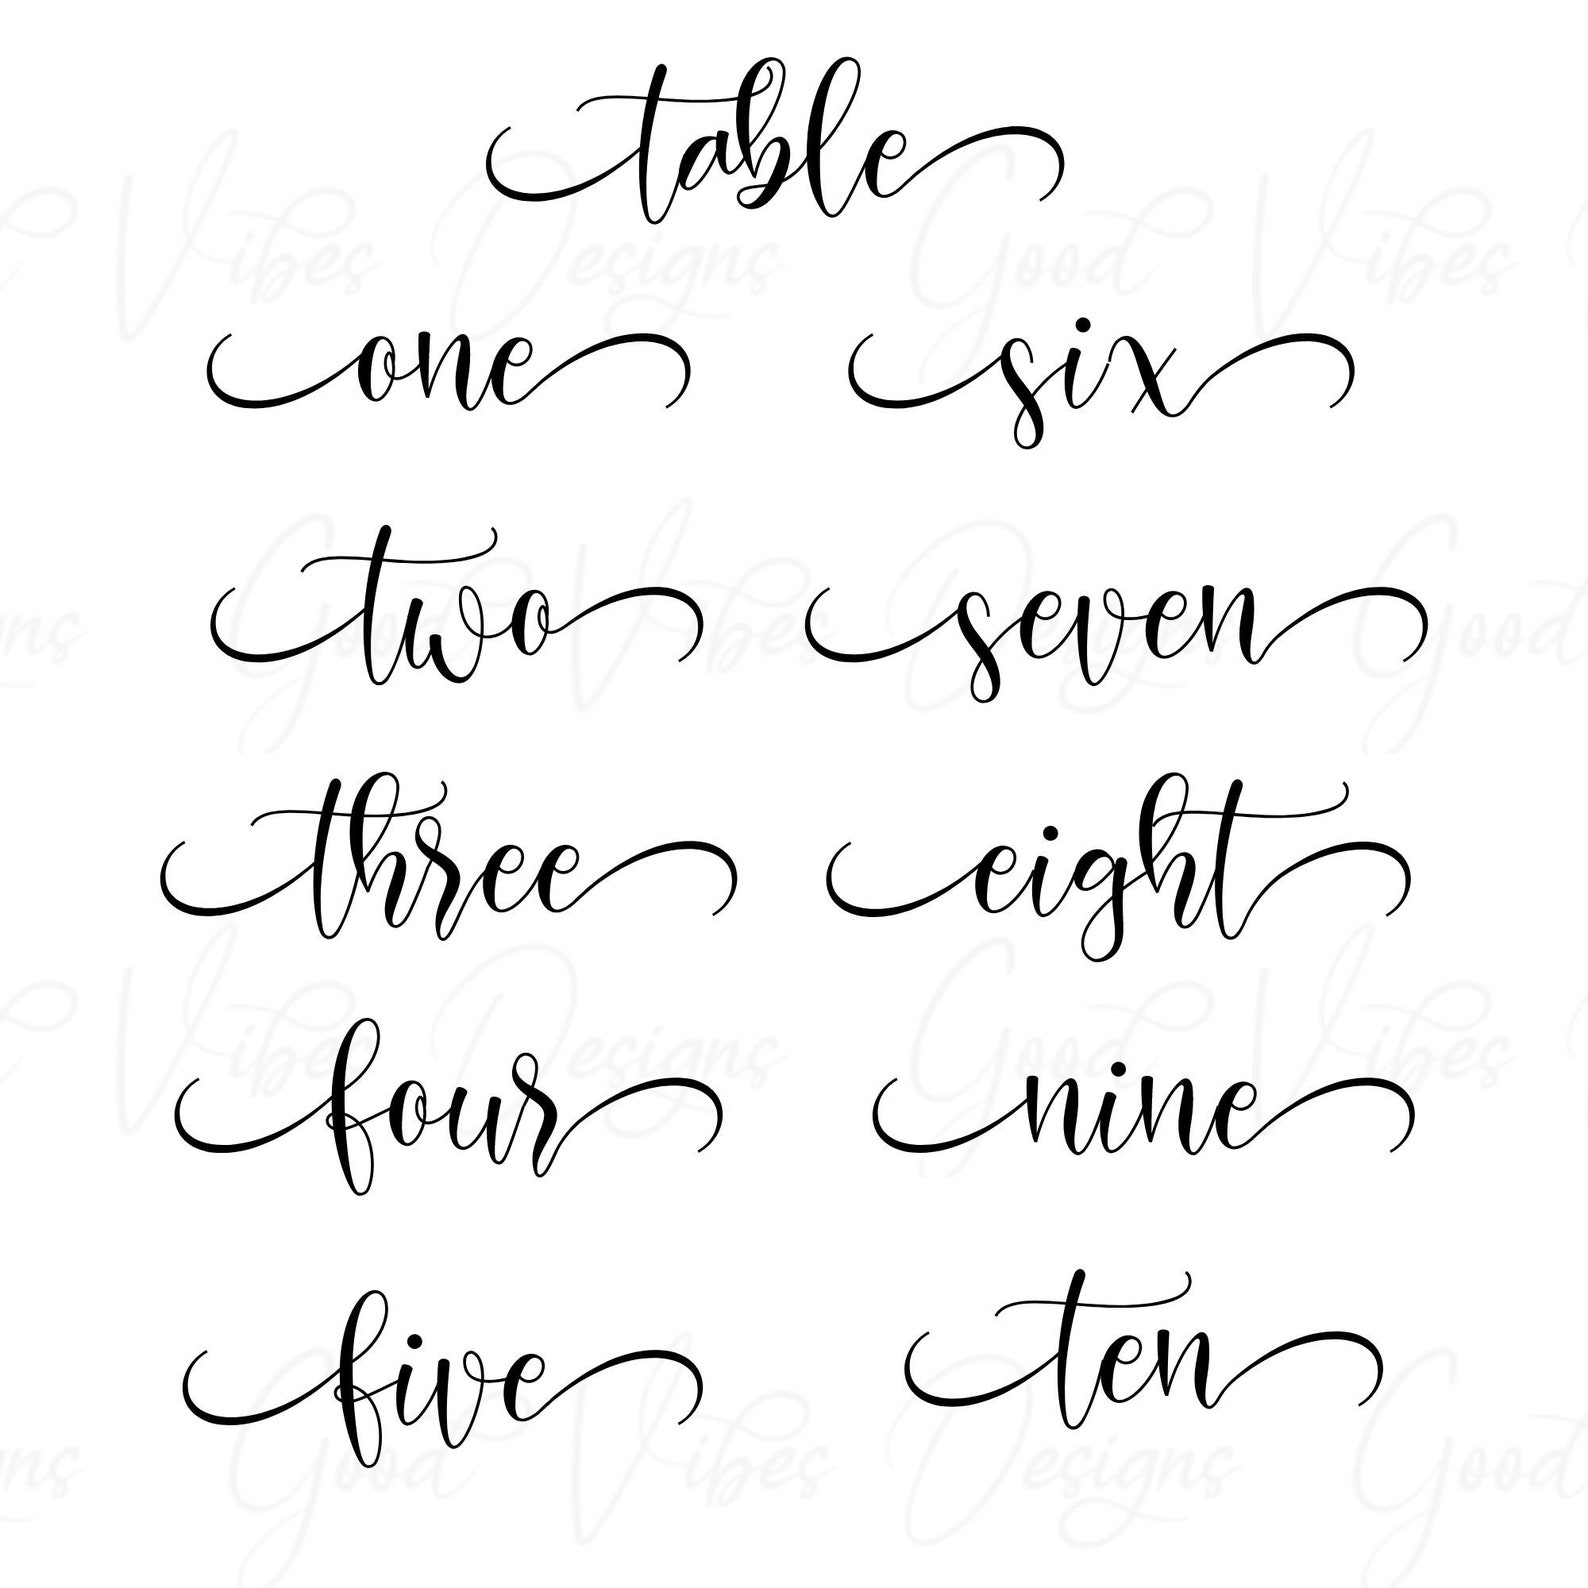 table
one
six
two
seven
three
eight
four
nine
five
ten
Good Vibes Designs